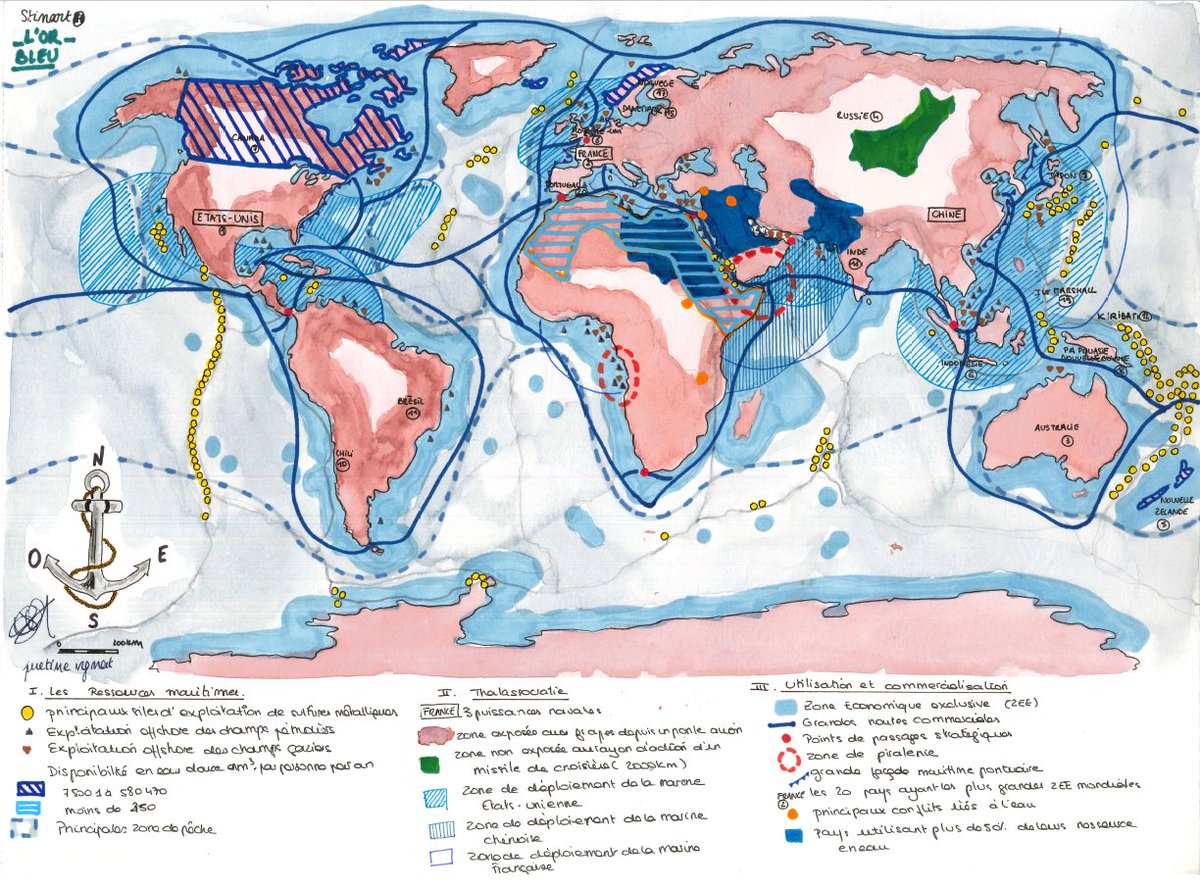 Stinart
L'OR
BLEU
NORVEGE
17
DANEMARK
15
CANADA
7
FRANCE
2
PORTUGAL
20
RUSSIE 4
ETATS-UNIS
1
CHINE
JAPON
INDE
18
ILE MARSHALL
19
KIRIBATI 12
PAPOUASIE
NOUVELLE GUINEE
INDONESIE
6
BRESIL
11
CHILI
10
AUSTRALIE
3
NOUVELLE
ZELANDE
N
O E
S
0 200km
I. Les Ressources maritimes.
principaux sites d'exploitation de sulfures métalliques
Exploitation offshore des champs pétroliers
Exploitation offshore des champs gaziers
Disponibilité en eau douce en m³, par personne par an
7501 à 580 470
moins de 750
Principales zone de pêche
II. Thalassocratie
FRANCE 3 puissances navales
zone exposée aux frappes depuis un porte avion
zone non exposée au rayon d'action d'un
missile de croisière (2000km)
Zone de déploiement de la marine
Etats-unienne
Zone de déploiement de la marine
chinoise
Zone de déploiement de la marine
Française
III. Utilisation et commercialisation
Zone Economique exclusive (ZEE)
Grandes routes commerciales
Points de passages stratégiques
zone de piraterie
grande façade maritime portuaire
FRANCE les 20 pays ayant les plus grandes ZEE mondiales
2
principaux conflits liés à l'eau
Pays utilisant plus de 50% de leurs ressource
en eau